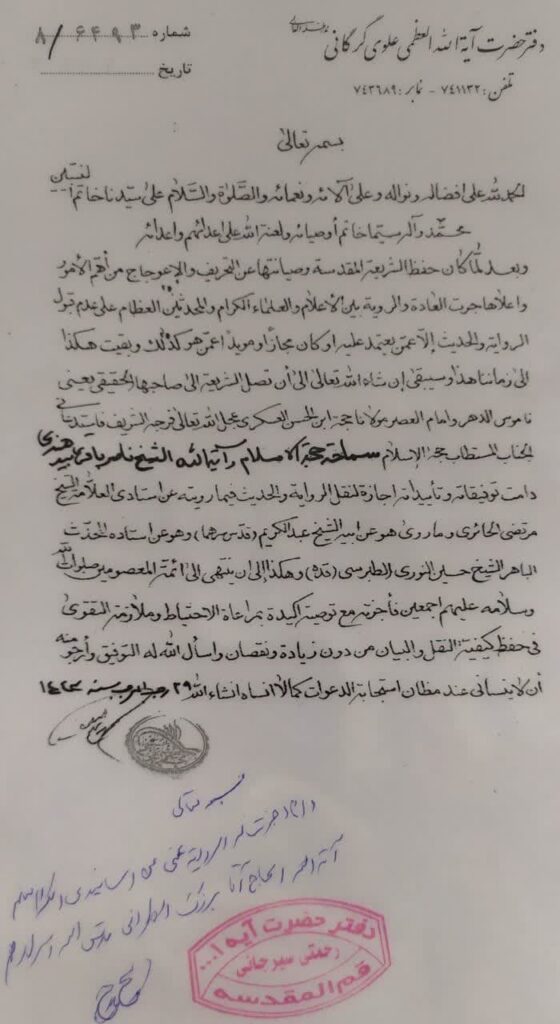 دفتر حضرت آیة الله العظمی علوی گرگانی
تلفن: ۷۴۱۱۳۲ - نمابر: ۷۴۳۶۸۹
شماره ۸/۶۴۹۳
تاریخ
بسمه تعالی
الحمد لله على افضاله ونواله وعلى آلائه ونعمائه والصلوة والسلام على سیدنا خاتم
محمد وآله سیما خاتم أوصیائه ولعنة الله على اعدائهم واعدائه
وبعد لما كان حفظ الشریعة المقدسة وصیانتها عن التحریف والإعوجاج من أهم الأمور
واعلاها جرت العادة والرویة بین الاعلام والعلماء الكرام والمحدثین العظام على عدم قبول
الروایة والحدیث إلا عمن یعتمد علیه او كان مجازاً او مویداً اعمن هو كذلك وبقیت هكذا
الى زماننا هذا وسیبقى إن شاء الله تعالى الى أن تصل الشریعة الى صاحبها الحقیقی یعنی
ناموس الدهر وامام العصر مولانا حجة ابن الحسن العسكری عجل الله تعالى فرجه الشریف
الجناب المستطاب حجة الإسلام سماحة حجة الاسلام و آیة الله الشیخ
دامت توفیقاته وتأییداته اجازة لنقل الروایة والحدیث فیما رویته عن استادی العلامة الشیخ
مرتضى الحائری وما روى هو عن ابیه الشیخ عبد الكریم (قدس سرهما) وهو عن استاده المحدث
الباهر الشیخ حسین النوری الطبرسی (قده) وهكذا إلى ان ینتهى الى ائمة المعصومین صلوات الله
وسلامه علیهم اجمعین فأجزته مع توصیة اكیدة بمراعاة الاحتیاط وملازمة التقوى
فی حفظ كیفیة النقل والبیان من دون زیادة ونقصان واسأل الله له التوفیق وأرجو منه
أن لا ینسانی عند مظان استجابة الدعوات كما لا انساه انشاء الله ۲۹ رجب سنه
بسمه تعالى
دفتر حضرت آیة ا...
رحمتی سیرجانی
قم المقدسه